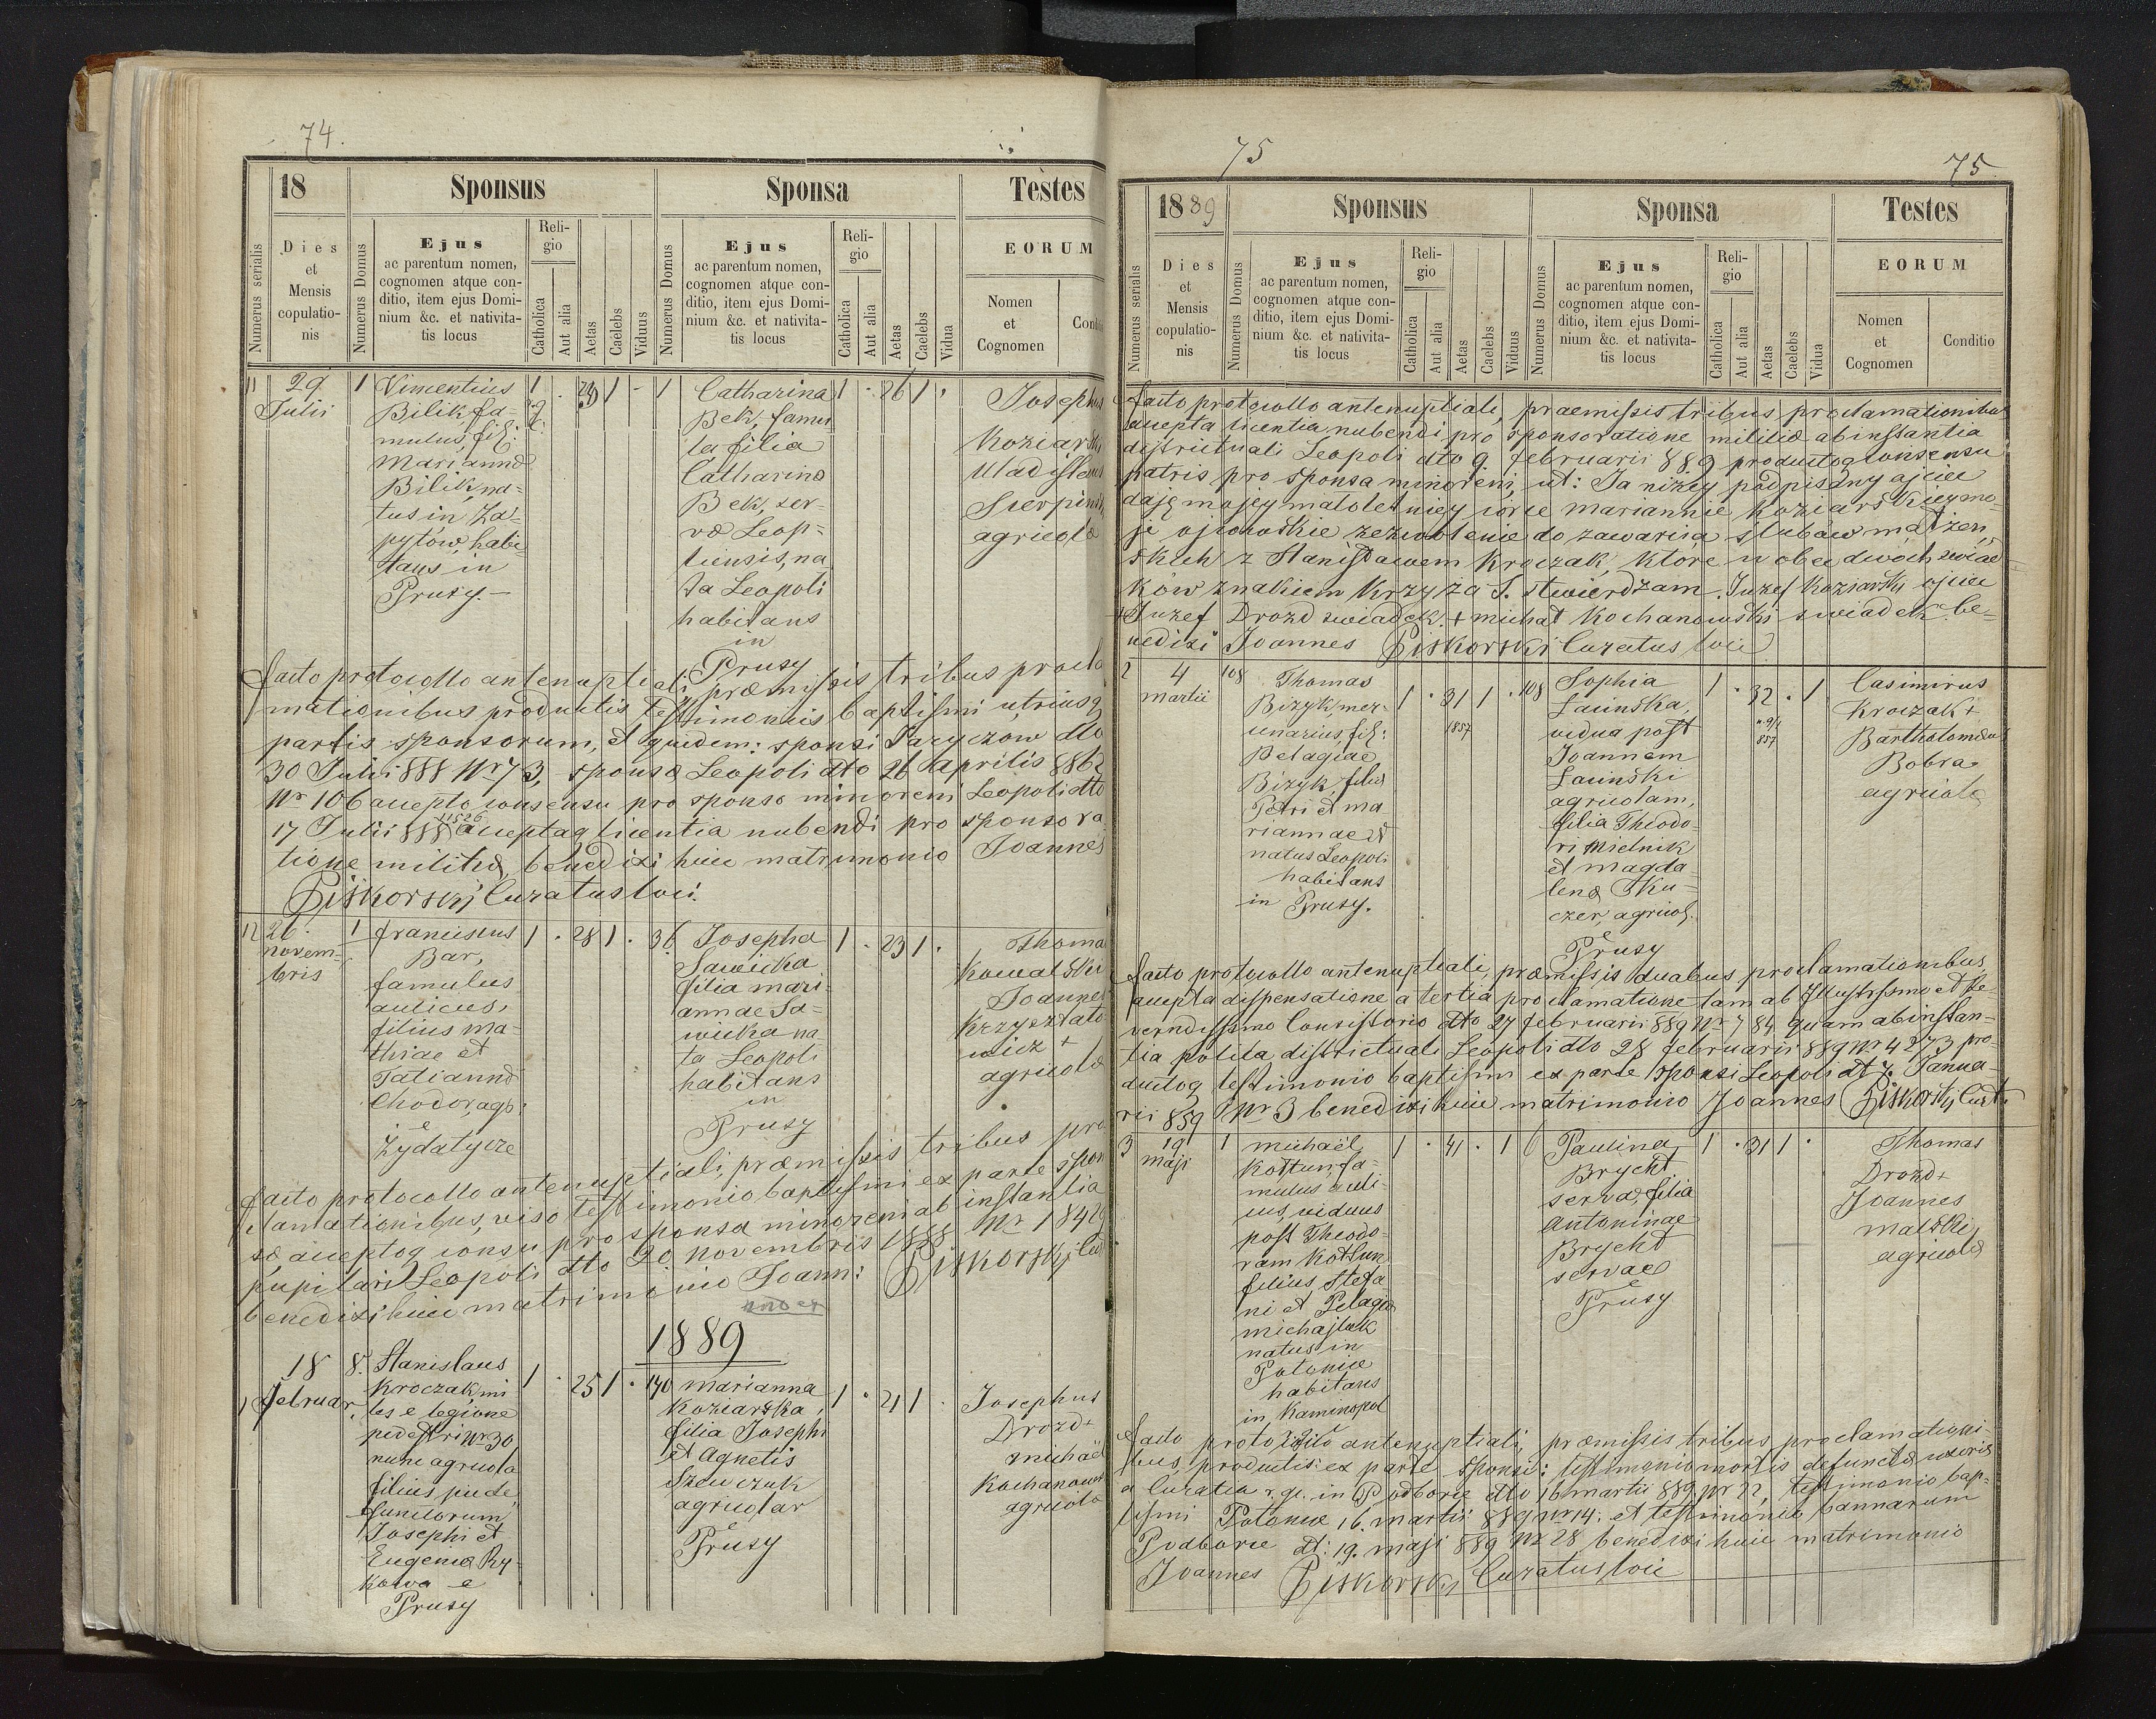 74.
18
Sponsus
Sponsa
Testes
Numerus serialis
Dies
et
Mensis
copulatio-
nis
Numerus Domus
Ejus
ac parentum nomen,
cognomen atque con-
ditio, item ejus Domi-
nium &c. et nativita-
tis locus
Reli-
gio
Catholica
Aut alia
Aetas
Caelebs
Viduus
Numerus Domus
Ejus
ac parentum nomen,
cognomen atque con-
ditio, item ejus Domi-
nium &c. et nativita-
tis locus
Reli-
gio
Catholica
Aut alia
Aetas
Caelebs
Vidua
EORUM
Nomen
et
Cognomen
11
29
Julii
1
Vincentius
Bilik, fa-
mulus, fil:
Mariannæ
Bilik, na-
tus in Za-
pytow, habi
tans in
Prusy.
1 . 1 -
1
Catharina
Bek, famu
la filia
Catharinæ
Bek, ser-
væ Leop-
liensis, na
ta Leopoli
habitans
in
Prusy
1 . 26 1 .
Joseph
Koziarski
Uladislaus
Sierpinski
agricola
facto protocollo antenuptiali, præmissis tribus procla
mationibus productis testimoniis baptismi utriusq
partis sponsorum, et quidem: sponsi Jaryczow dto
30 Julii 888 Nr 73, sponsæ Leopoli dto 26 Aprilis 862
Nr 106 accepto consensu pro sponso minoreni Leopoli dto
17 Julii 888 11526 acceptaq licentia nubendi pro sponso ra
tione militiæ, benedixi huic matrimonio Joannes
Piskorskij Curatus loci.
12
26.
novem-
bris
1
franciscus
Bar,
famulus
aulicus,
filius Ma-
thiae et
Tatiannæ
Chodor, agr:
e
Żydatycze
1 . 28 1 .
36
Josepha
Sawicka
filia Mari-
annae Sa-
wicka na-
ta Leopoli
habitans
in
Prusy
1 . 23 1 .
Thoma
Kowalski
Joannes
Krzysztalo
wicz +
agricola
facto protocollo antenuptiali, præmissis tribus pro
clamationibus, viso testimonio baptismi ex parte spon
sæ, acceptoq consu pro sponsa minoreni ab instantia
pupilari Leopoli dto 20 novembris 1888 Nr 1842
benedixi huic matrimonio Joann: Piskorskij Cur
1889
1
18
februar.
8.
Stanislaus
Kroczak mi
les e legione
pedestri Nr 30
nunc agricola
filius pie de
functorum
Josephi et
Eugeniæ Ry-
kowa e
Prusy
1 . 25 1 .
140
Marianna
Koziarska,
filia Josephi
et Agnetis
Szewczuk
agricolar
e
Prusy
1 . 21 1 .
Josephus
Drozd +
Michael
Kochanows
agricola
75
75
1889
Sponsus
Sponsa
Testes
Numerus serialis
Dies
et
Mensis
copulatio-
nis
Numerus Domus
Ejus
ac parentum nomen,
cognomen atque con-
ditio, item ejus Domi-
nium &c. et nativita-
tis locus
Reli-
gio
Catholica
Aut alia
Aetas
Caelebs
Viduus
Numerus Domus
Ejus
ac parentum nomen,
cognomen atque con-
ditio, item ejus Domi-
nium &c. et nativita-
tis locus
Reli-
gio
Catholica
Aut alia
Aetas
Caelebs
Vidua
EORUM
Nomen
et
Cognomen
Conditio
facto protocollo antenuptiali, praemissis tribus proclamationibus
accepta licentia nubendi pro sponso ratione militiæ ab instantia
districtuali Leopoli dto 9 februarii 889 productoq consensu
patris pro sponsa minoreni, ut: Ja niżey podpisany ojciec
daję mojey małoletniey corce Mariannie Koziarskiey mo-
je ojcowskie zezwolenie do zawarcia ślubow małżen
skich z Stanisławem Kroczak, które w obec dwóch swiad
ków znakiem Krzyża S. stwierdzam. Juzef Koziarski ojciec
+ Juzef Drozd swiadek. + michał Kochanowski swiadek be-
nedixi Joannes Piskorski Curatus loci
2
4
Martii
108
Thomas
Bizyk, mer-
cenarius, fil:
Pelagiae
Bizyk, filiæ
Petri et Ma
riannae
natus Leopoli
habitans
in Prusy.
1 . 31 1 .
1857
108
Sophia
Launska,
vidua post
Joannem
Launski
agricolam,
filia Theodo-
ri Mielnik
et Magda-
lenæ Sku-
czer, agricol.
e
Prusy
1 . 32 . 1
857
Casimirus
Kroczak +
Bartholomæus
Bobra
agricolæ
facto protocollo antenuptiali, præmissis duabus proclamationibus
accepta dispensatione a tertia proclamatione tam ab Illustrissimo et Re-
verndissimo Consistorio dto 27 februarii 889 Nr 784 quam ab instan-
tia politia districtuali Leopoli dto 28 februarii 889 Nr 4273 pro-
ductoq testimonio baptismi ex parte sponsi Leopoli dt 7. Janua-
rii 859 Nr 3 benedixi huic matrimonio Joannes Piskorskij Curt
3
19
Maji
1
Michaël
Kottun, fa-
mulus auli-
cus, viduus
post Theodo-
ram Kottun
filius Stefa
ni et Pelagiæ
Michajluk
natus in
Potonice
habitans
in Kamenopol
1 . 41 . 1
6
Paulina
Brycht,
serva, filia
Antoninae
Brycht
servae
e
Prusy
1 . 31 1 .
Thomas
Drozd +
Joannes
Malski
agricolæ
facto protocollo antenuptiali, præmissis tribus proclamationi-
bus, productis ex parte sponsi: testimonio mortis defunctæ uxoris
a Curatia r. gr. in Podborce dto 16 Martii 889 Nr 22, testimonio bap-
tismi Potonice 16. Martii 889 Nr 14. et testimonio bannarum
Podborce dt: 19. Maji 889 Nr 28 benedixi huic matrimonio
Joannes Piskorskj Curatus loci